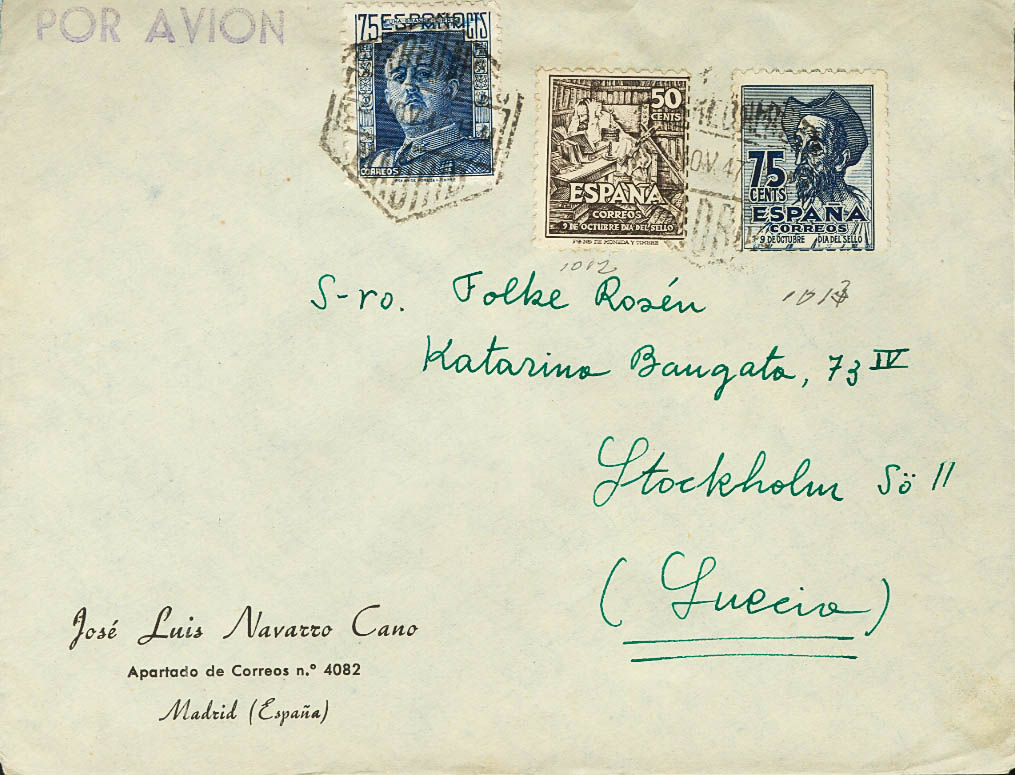 POR AVION
75 ESPAÑA cts
CORREOS
50
CENTS
ESPAÑA
CORREOS
9 DE OCTUBRE DIA DEL SELLO
75
CENTS
ESPAÑA
CORREOS
9 DE OCTUBRE DIA DEL SELLO
NOV. 47
MADRID
1012
1013
S-ro. Folke Rosén
Katarina Baugata, 73 IV
Stockholm Sö 11
(Suecia)
José Luis Navarro Cano
Apartado de Correos n.° 4082
Madrid (España)